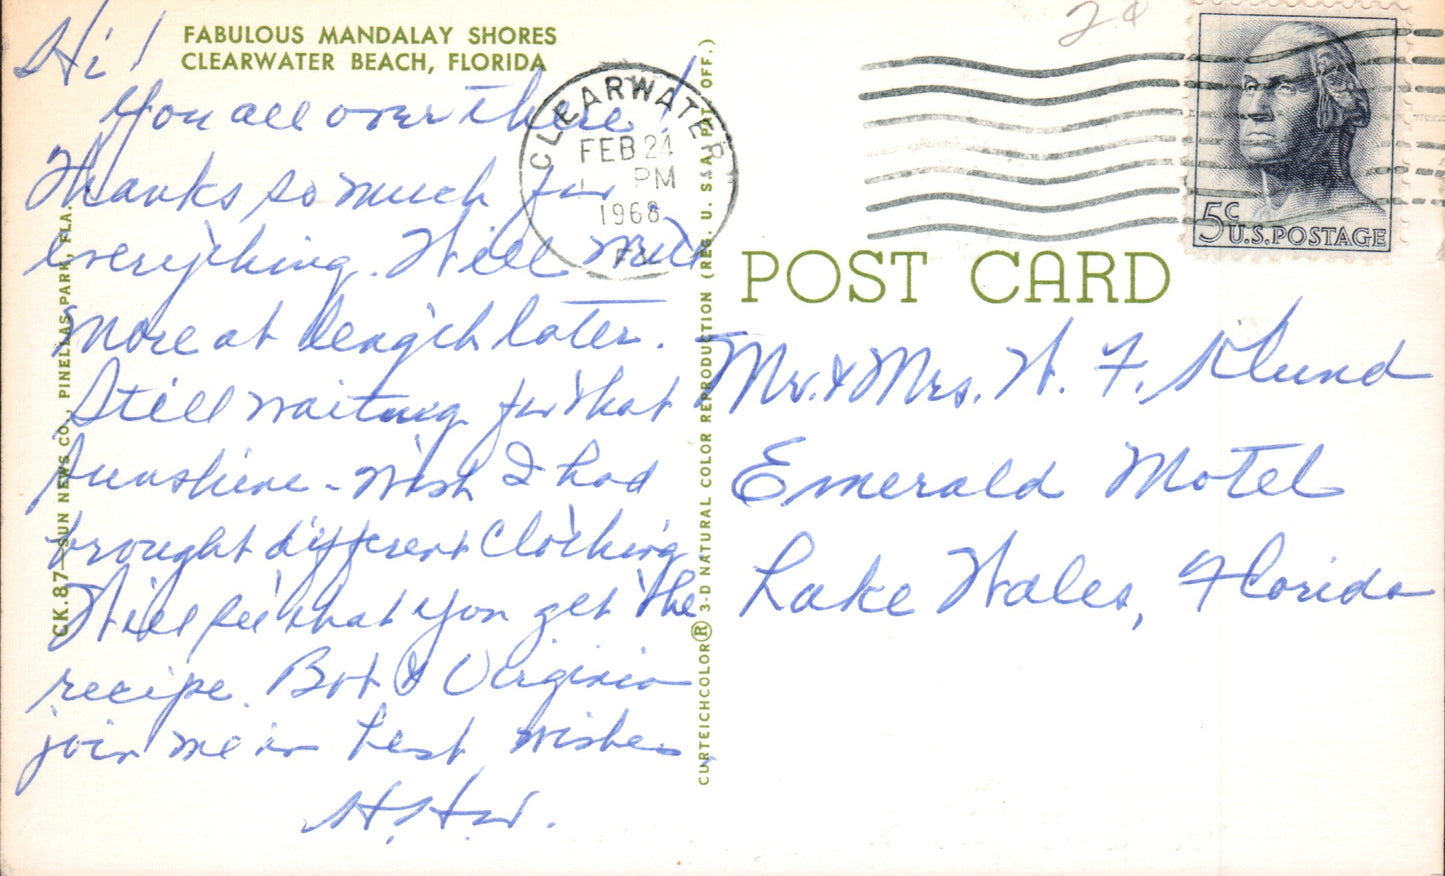 FABULOUS MANDALAY SHORES
CLEARWATER BEACH, FLORIDA
Hi!
You all over there!
Thanks so much for
everything. Will write
more at length later.
Still waiting for that
sunshine - Wish I had
brought different clothing
Will see that you get the
recipe. Bob & Virginia
join me in best wishes,
H.H.W.
CK.87—SUN NEWS CO., PINELLAS PARK, FLA.
CURTEICHCOLOR® 3-D NATURAL COLOR REPRODUCTION (REG. U. S. A. PAT. OFF.)
2¢
CLEARWATER
FEB 24
PM
1968
5c
U.S.POSTAGE
POST CARD
Mr. & Mrs. W. F. Klund
Emerald Motel
Lake Wales, Florida